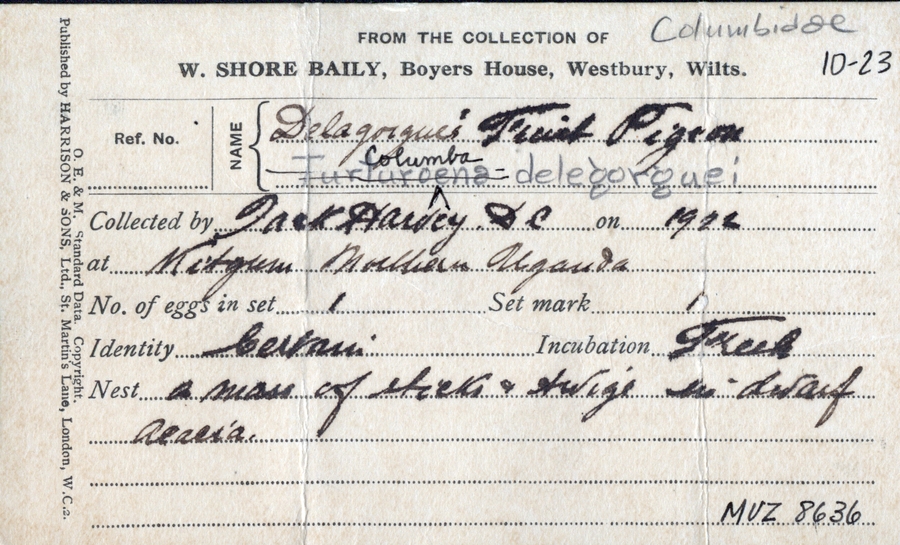 Columbidae
FROM THE COLLECTION OF
10-23
W. SHORE BAILY, Boyers House, Westbury, Wilts.
Ref. No.
NAME
Delagorguei Fruit Pigeon
Columba
Turturoena delegorguei
Collected by Jack Hardey. D C on 1922
at Kitgum Northern Uganda
No. of eggs in set 1 Set mark 1
Identity Certain Incubation Fresh
Nest a mass of sticks & twigs in dwarf
Acacia.
MVZ 8636
O. E. & M. Standard Data. Copyright.
Published by HARRISON & SONS, Ltd., St. Martin's Lane, London, W.C.2.